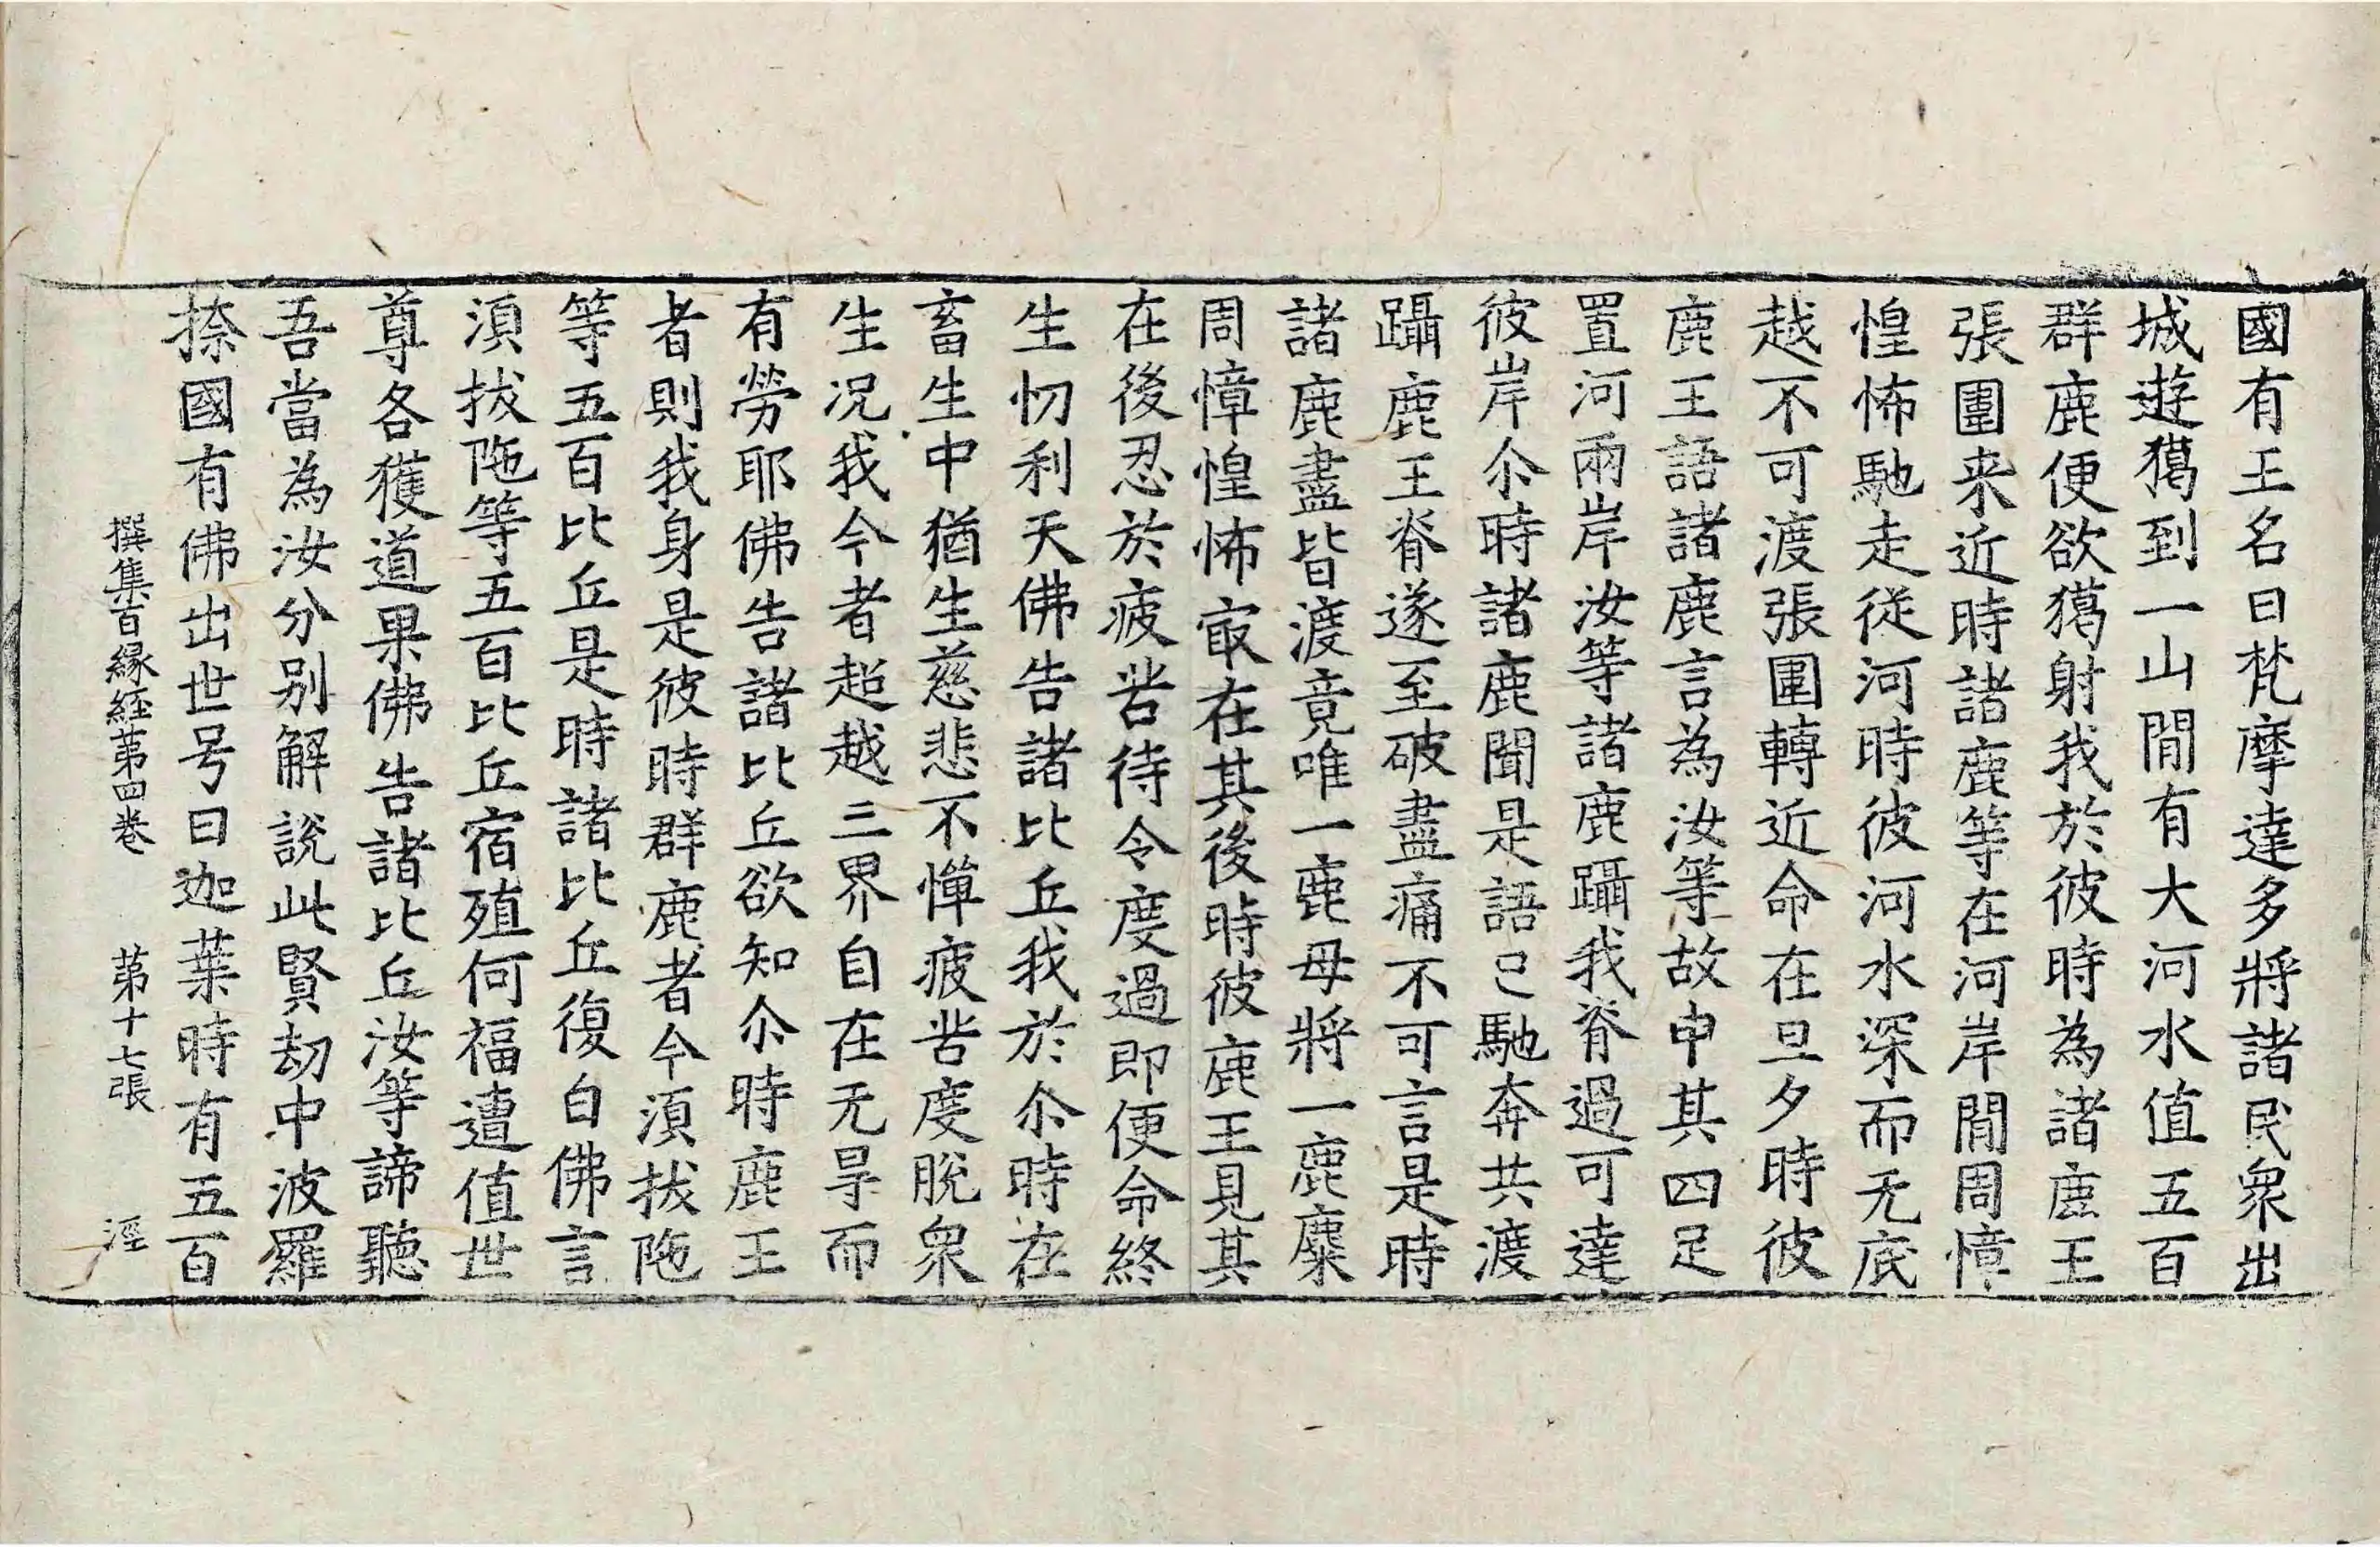 國有王名曰梵摩達多將諸民衆出
城遊獦到一山間有大河水值五百
群鹿便欲獦射我於彼時為諸鹿王
張圍来近時諸鹿等在河岸間周慞
惶怖馳走從河時彼河水深而无底
越不可渡張圍轉近命在旦夕時彼
鹿王語諸鹿言為汝等故申其四足
置河兩岸汝等諸鹿躡我脊過可達
彼岸尒時諸鹿聞是語已馳奔共渡
躡鹿王脊遂至破盡痛不可言是時
諸鹿盡皆渡竟唯一鹿母將一鹿麋
周慞惶怖㝡在其後時彼鹿王見其
在後忍於疲苦待令度過即便命終
生忉利天佛告諸比丘我於尒時在
畜生中猶生慈悲不憚疲苦度脫衆
生况我今者超越三界自在无㝵而
有勞耶佛告諸比丘欲知尒時鹿王
者則我身是彼時群鹿者今湏拔陁
等五百比丘是時諸比丘復白佛言
湏拔陁等五百比丘宿殖何福遭值世
尊各獲道果佛告諸比丘汝等諦聽
吾當為汝分别解說此賢劫中波羅
捺國有佛出世号曰迦葉時有五百
撰集百縁経苐四卷 苐十七張 涇